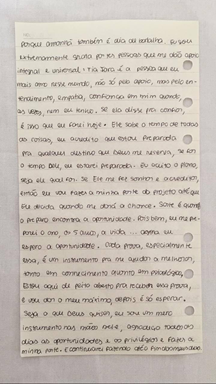 porque amanhã também é dia de batalha. Eu sou
extremamente grata pelas pessoas que me dão apoio
integral e universal. Tia Iara é a pessoa que eu
mais amo nesse mundo, não só pelo apoio, mas pelo en-
tendimento, empatia, confiança em mim quando,
às vezes, nem eu tenho. Se ela disse pra confiar,
é isso que eu farei hoje. Ele sabe o tempo de todas
as coisas, eu acredito que estou preparada
pra qualquer destino que Deus me reserve, se for
o tempo dEle, eu estarei preparada. Eu aceito o plano,
seja ele qual for. Se Ele me fez sonhar e acreditar,
então eu vou fazer a minha parte do projeto até que
Ele decida quando me dará a chance. Sorte é quando
o preparo encontra a oportunidade. Pois bem, eu me pre-
parei o ano, os 5 anos, a vida ... agora eu
espero a oportunidade. Cada prova, especialmente
essa, é um instrumento pra me ajudar a melhorar,
tanto em conhecimento quanto em psicológico.
Estou aqui de peito aberto pra receber essa prova,
e vou dar o meu máximo, depois é só esperar.
Seja o que Deus quiser, eu sou um mero
instrumento nas mãos dele, agradeço todos os
dias as oportunidades e os privilégios e faço a
minha parte. E continuarei fazendo até